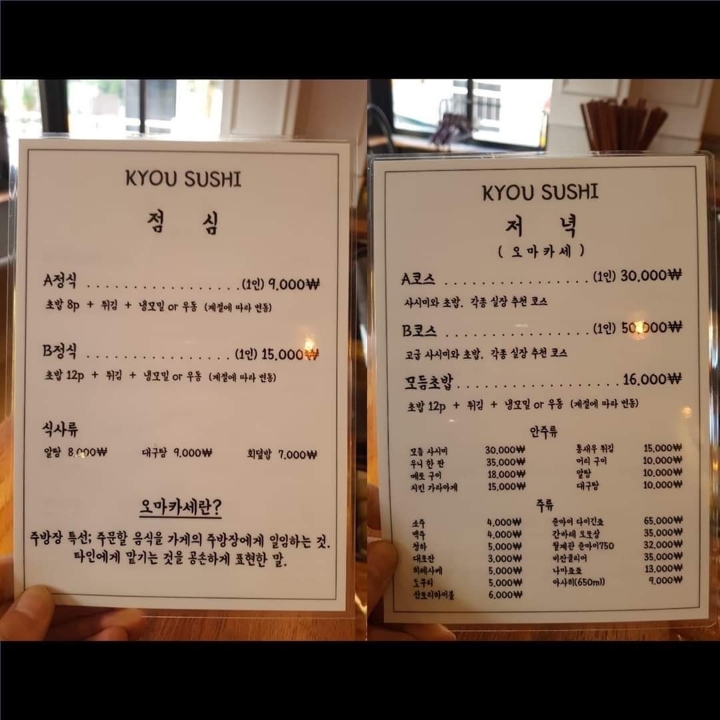 KYOU SUSHI
점 심
A정식 ................. (1인) 9,000₩
초밥 8p + 튀김 + 냉모밀 or 우동 (계절에 따라 변동)
B정식 ................. (1인) 15,000₩
초밥 12p + 튀김 + 냉모밀 or 우동 (계절에 따라 변동)
식사류
알탕 8,000₩ 대구탕 9,000₩ 회덮밥 7,000₩
오마카세란?
주방장 특선; 주문할 음식을 가게의 주방장에게 일임하는 것.
타인에게 맡기는 것을 공손하게 표현한 말.
KYOU SUSHI
저 녁
( 오마카세 )
A코스 ................. (1인) 30,000₩
사시미와 초밥, 각종 실장 추천 코스
B코스 ................. (1인) 50,000₩
고급 사시미와 초밥, 각종 실장 추천 코스
모듬초밥 ..................... 16,000₩
초밥 12p + 튀김 + 냉모밀 or 우동 (계절에 따라 변동)
안주류
모듬 사시미 30,000₩ 통새우 튀김 15,000₩
우니 한 판 35,000₩ 머리 구이 10,000₩
메로 구이 18,000₩ 알탕 10,000₩
치킨 가라아게 15,000₩ 대구탕 10,000₩
주류
소주 4,000₩ 준마이 다이긴죠 65,000₩
맥주 4,000₩ 간바레 오또상 35,000₩
청하 5,000₩ 월계관 준마이750 32,000₩
대포잔 3,000₩ 비잔클리어 35,000₩
히레사케 5,000₩ 나마쵸쵸 13,000₩
도쿠리 5,000₩ 아사히(650ml) 9,000₩
산토리하이볼 6,000₩